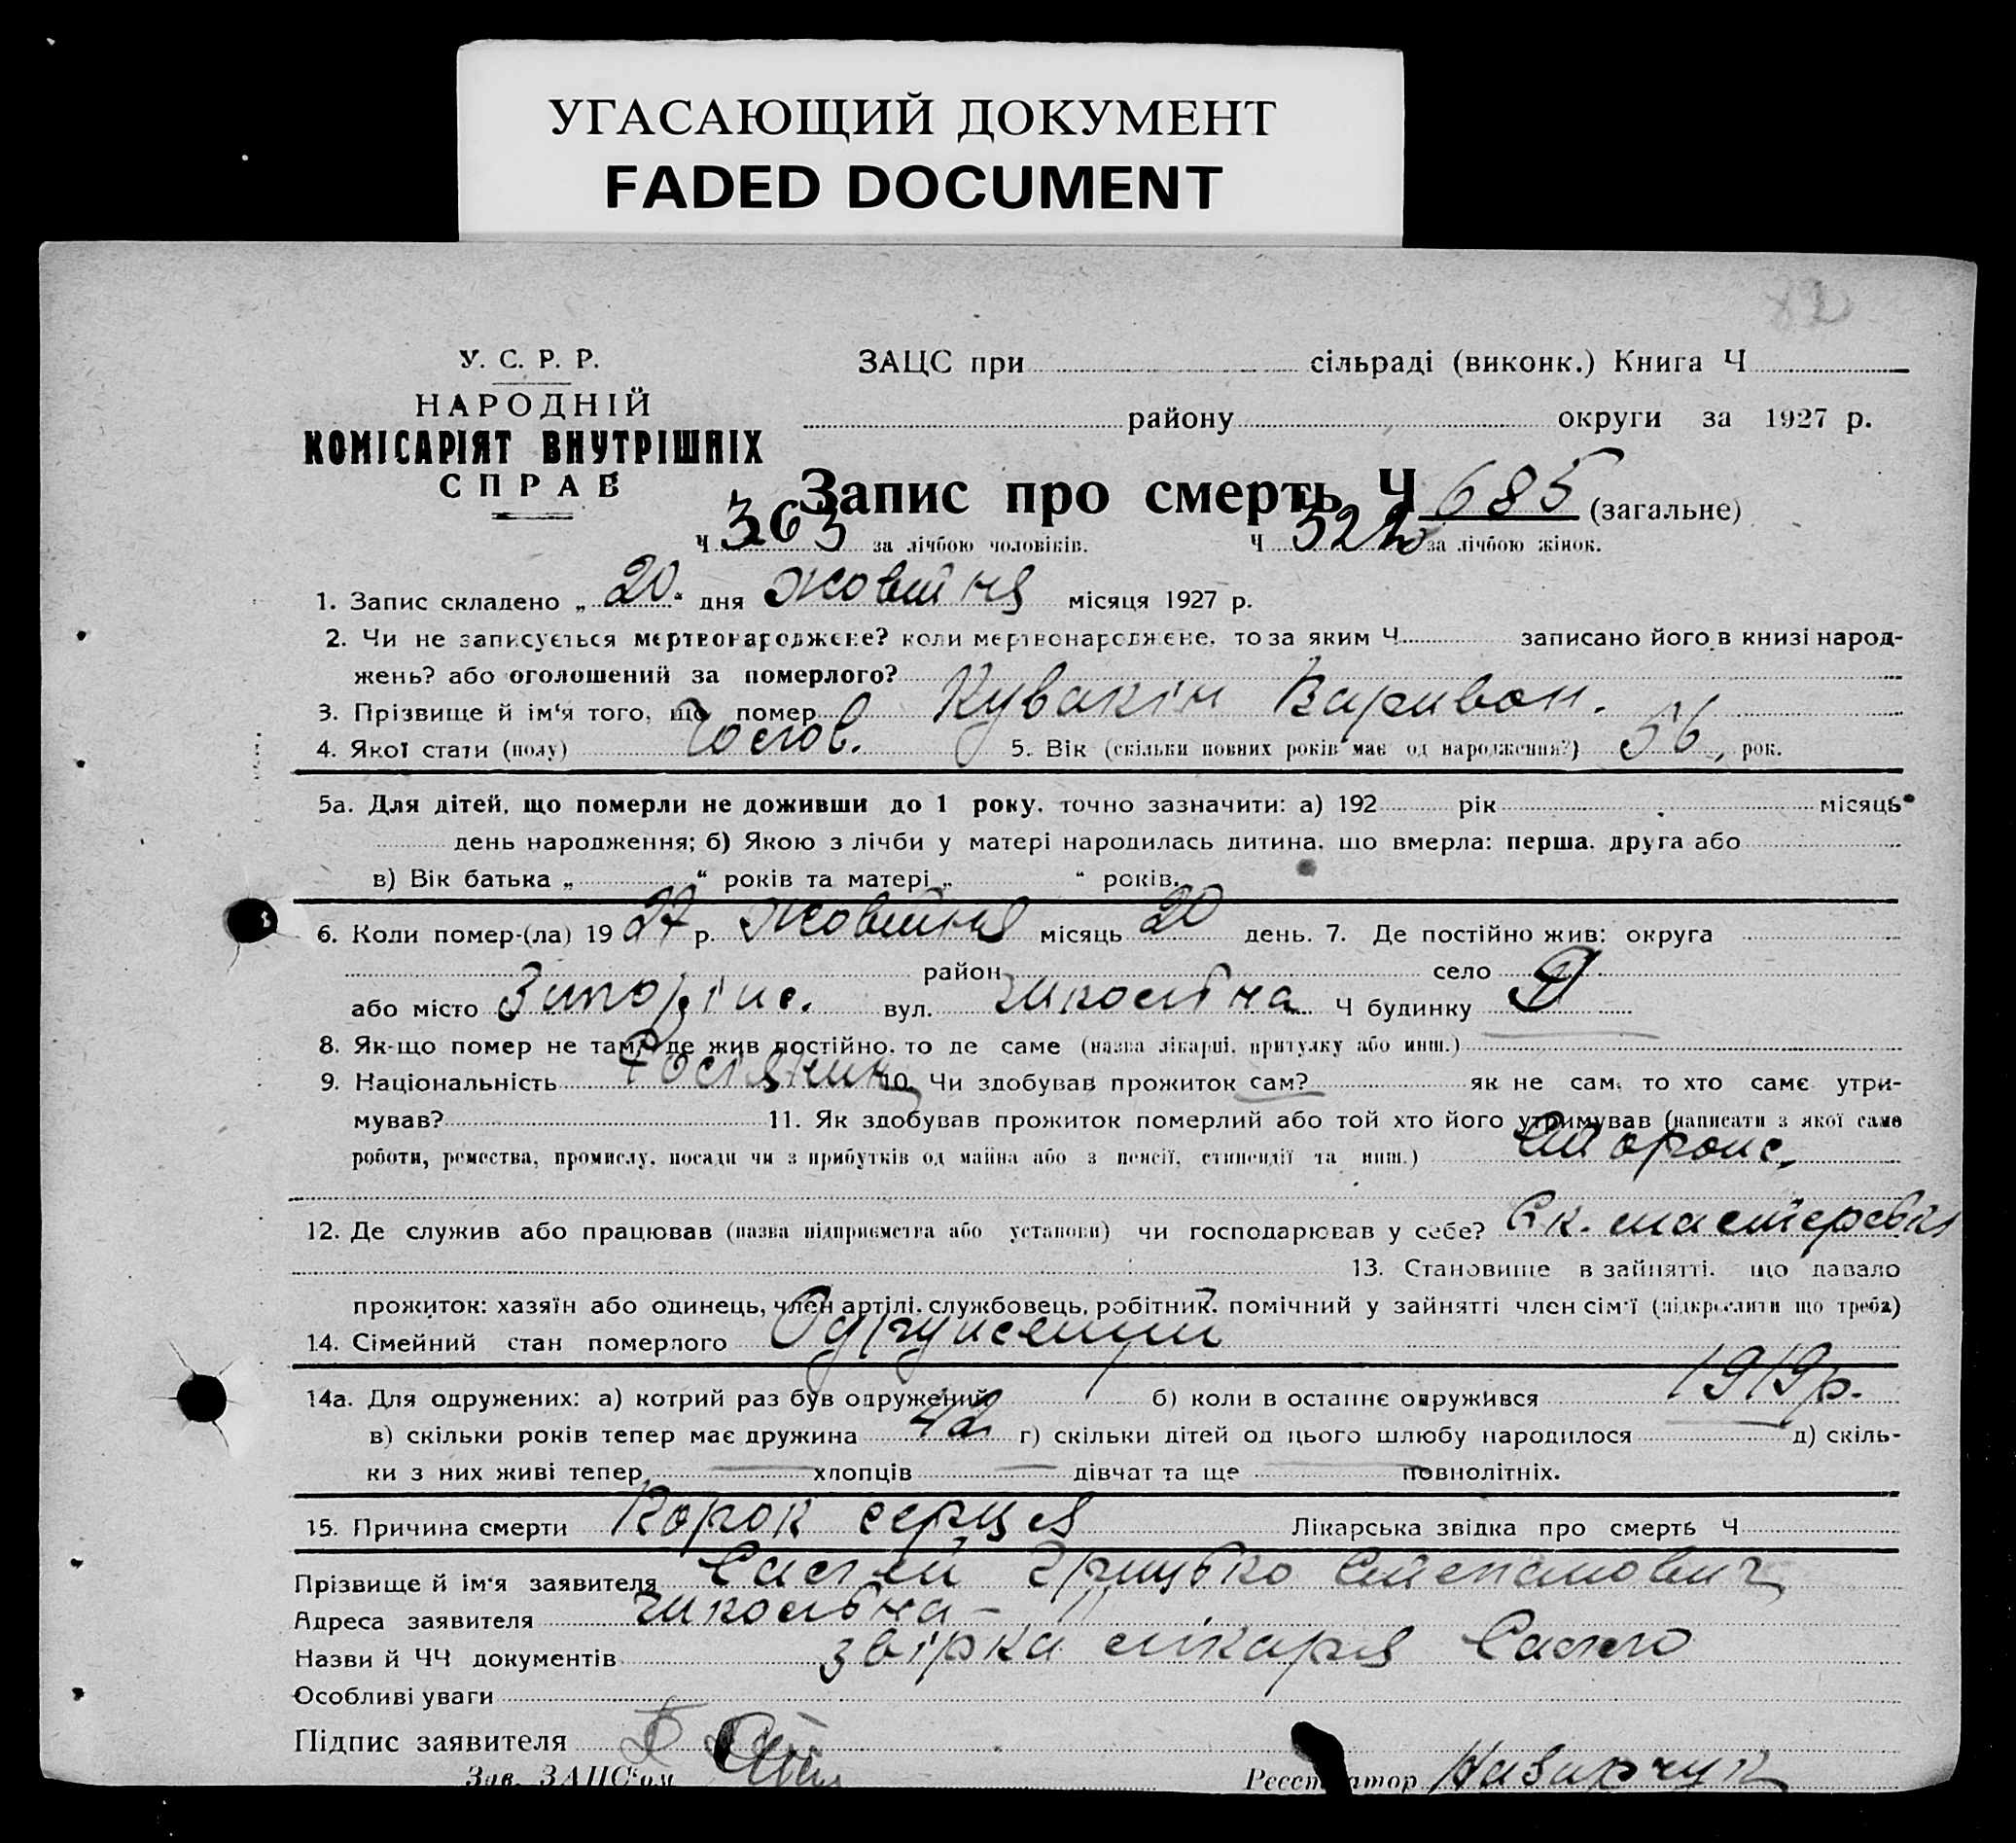 УГАСАЮЩИЙ ДОКУМЕНТ
FADED DOCUMENT
82
У. С. Р. Р.
НАРОДНІЙ
КОМІСАРІЯТ ВНУТРІШНІХ
СПРАВ
ЗАЦС при сільраді (виконк.) Книга Ч
району округи за 1927 р.
Запис про смерть Ч 685 (загальне)
Ч 363 за лічбою чоловіків. Ч 322 за лічбою жінок.
1. Запис складено „ 20 “ дня жовтня місяця 1927 р.
2. Чи не записується мертвонароджене? коли мертвонароджене, то за яким Ч записано його в книзі народ-
жень? або оголошений за померлого?
3. Прізвище й ім'я того, що помер Кувакін Варивон.
4. Якої стати (полу) Чолов. 5. Вік (скільки повних років має од народження?) 56, рок.
5а. Для дітей, що померли не доживши до 1 року, точно зазначити: а) 192 рік місяць
день народження; б) Якою з лічби у матері народилась дитина, що вмерла: перша, друга або
в) Вік батька „ “ років та матері „ “ років.
6. Коли помер-(ла) 1927 р. жовтня місяць 20 день. 7. Де постійно жив: округа
район село
або місто Запоріжж. вул. Школьна Ч будинку
8. Як-що помер не там, де жив постійно, то де саме (назва лікарні, притулку або инш.)
9. Національність Росіянин 10. Чи здобував прожиток сам? як не сам, то хто саме утри-
мував? 11. Як здобував прожиток померлий або той хто його утримував (написати з якої саме
роботи, ремества, промислу, посади чи з прибутків од майна або з пенсії, стипендії та инш.) Сторож.
12. Де служив або працював (назва підприємства або установи) чи господарював у себе? Ек. мастерськ
13. Становище в зайнятті, що давало
прожиток: хазяїн або одинець, член артілі, службовець, робітник, помічний у зайнятті член сім'ї (підкреслити що треба)
14. Сімейний стан померлого Одружений
14а. Для одружених: а) котрий раз був одружений 1 б) коли в останнє одружився 1919 р.
в) скільки років тепер має дружина 42 г) скільки дітей од цього шлюбу народилося д) скіль-
ки з них живі тепер хлопців дівчат та ще повнолітніх.
15. Причина смерти Порок серця Лікарська звідка про смерть Ч
Прізвище й ім'я заявителя Грицько Степанович
Адреса заявителя Школьна - 11
Назви й ЧЧ документів звірка лікаря
Особливі уваги
Підпис заявителя
Зав. ЗАЦС'ом Реєстратор